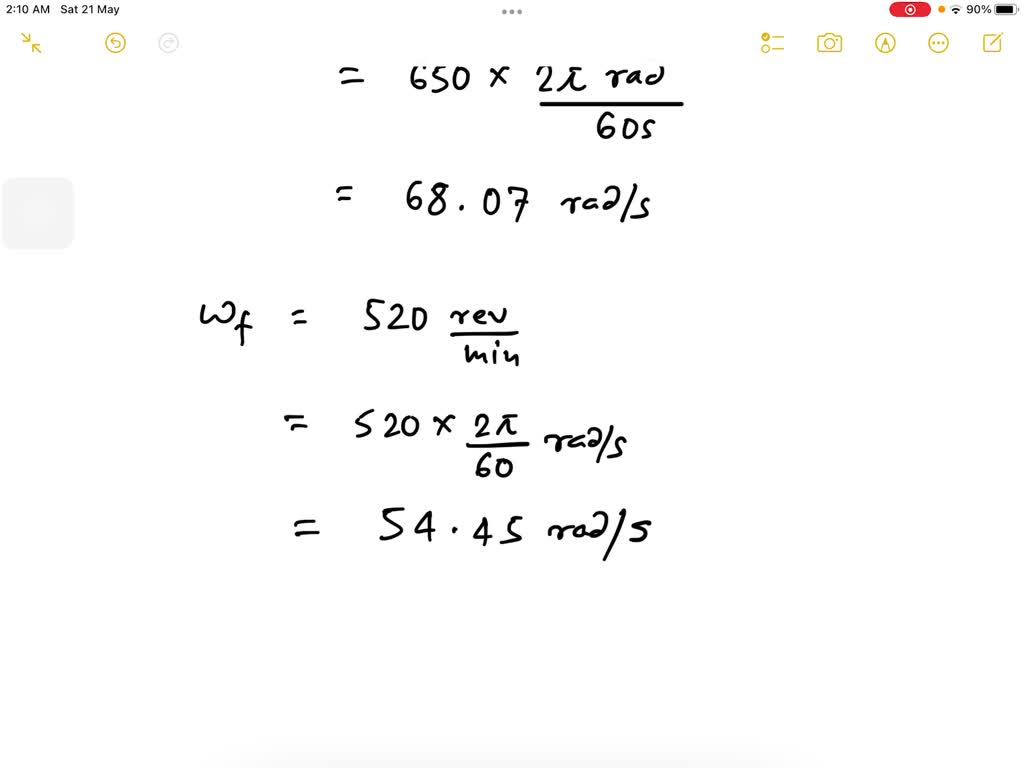 2:10 AM Sat 21 May 90%
= 650 × 2π rad
60s
= 68.07 rad/s
ωf = 520 rev
min
= 520 × 2π rad/s
60
= 54.45 rad/s